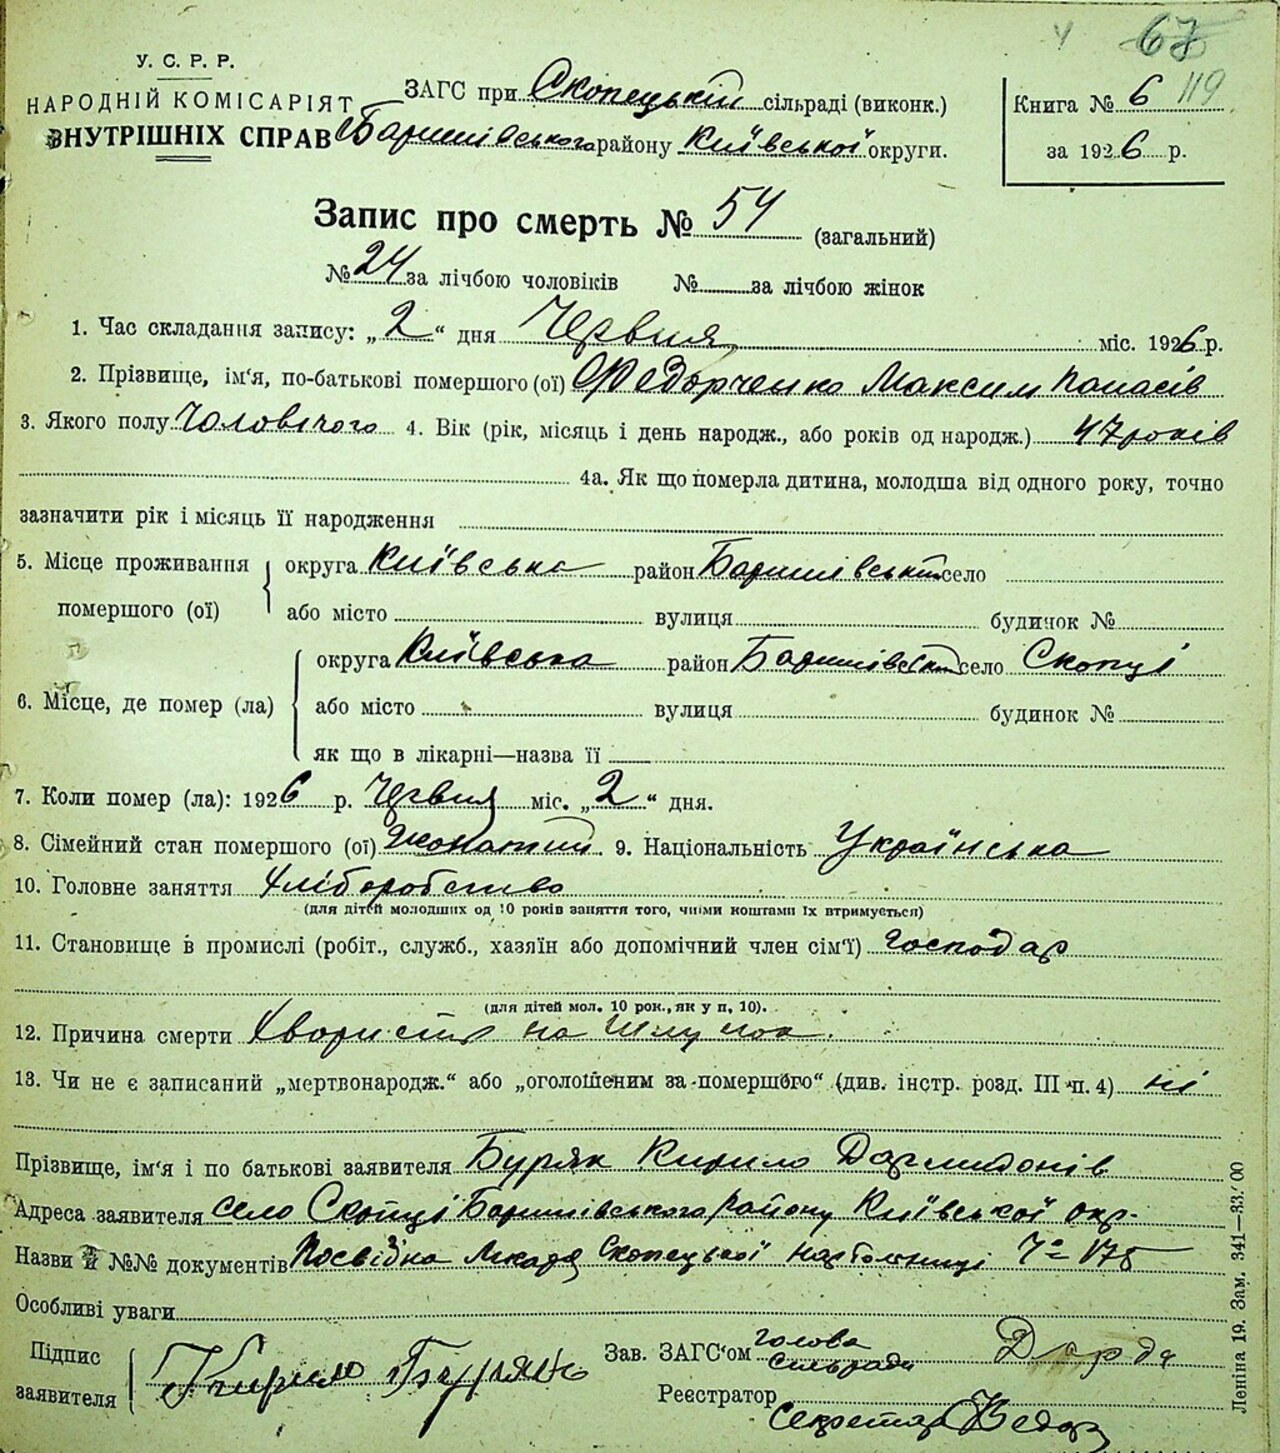 67
119
У. С. Р. Р.
НАРОДНІЙ КОМІСАРІЯТ
ВНУТРІШНІХ СПРАВ
ЗАГС при Скопецькій сільраді (виконк.)
Баришівського району Київської округи.
Книга № 6
за 1926 р.
Запис про смерть № 54 (загальний)
№ 24 за лічбою чоловіків № за лічбою жінок
1. Час складання запису: „2“ дня Червня міс. 1926 р.
2. Прізвище, ім‘я, по-батькові помершого (ої) Федорченко Максим Панасів
3. Якого полу Чоловічого 4. Вік (рік, місяць і день народж., або років од народж.) 47 років
4а. Як що померла дитина, молодша від одного року, точно
зазначити рік і місяць її народження
5. Місце проживання помершого (ої)
округа Київська район Баришівський село
або місто вулиця будинок №
6. Місце, де помер (ла)
округа Київська район Баришівський село Скопці
або місто вулиця будинок №
як що в лікарні—назва її
7. Коли помер (ла): 1926 р. Червня міс. „2“ дня.
8. Сімейний стан помершого (ої) жонатий 9. Національність Українська
10. Головне заняття хліборобство
(для дітей молодших од 10 років заняття того, чиїми коштами їх втримується)
11. Становище в промислі (робіт., служб., хазяїн або допомічний член сім‘ї) господар
(для дітей мол. 10 рок., як у п. 10).
12. Причина смерти на шлунок.
13. Чи не є записаний „мертвонародж.“ або „оголошеним за помершого“ (див. інстр. розд. III п. 4) ні
Прізвище, ім‘я і по батькові заявителя Буряк Кирило
Адреса заявителя село Скопці Баришівського району Київської окр.
Назви й №№ документів Посвідка Лікаря Скопецької
Особливі уваги
Підпис заявителя Кирило Буряк
Зав. ЗАГС‘ом голова сільради
Реєстратор
Секретар
Леніна 19. Зам. 341—33.000